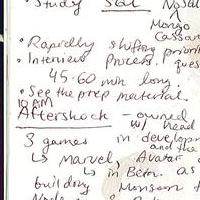 • Study SQL NoSQL
Mongo
Cassan
• Rapidly shifting priorit
• Interview Process. ques
45-60 min long.
• See the prep material
10 AM
Aftershock - owned
w/ head
3 games in develop
and the
↳ Marvel, Avatar
↳ in Beta. as
building Monsoon t